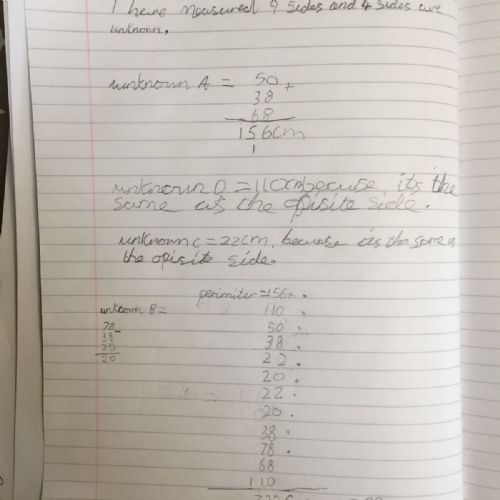 I have measured 9 sides and 4 sides are
unknown.
unknown A = 50 +
38
68
156cm
1
unknown D = 110cm becuse its the
same as the opisite side.
unknown C = 22cm, because its the same as
the opisite side.
perimiter = 156 + .
unknown B = 110 .
78 - 50 .
38 38 .
20 22 .
20 20 .
22 .
20 .
38 .
78 .
68
110